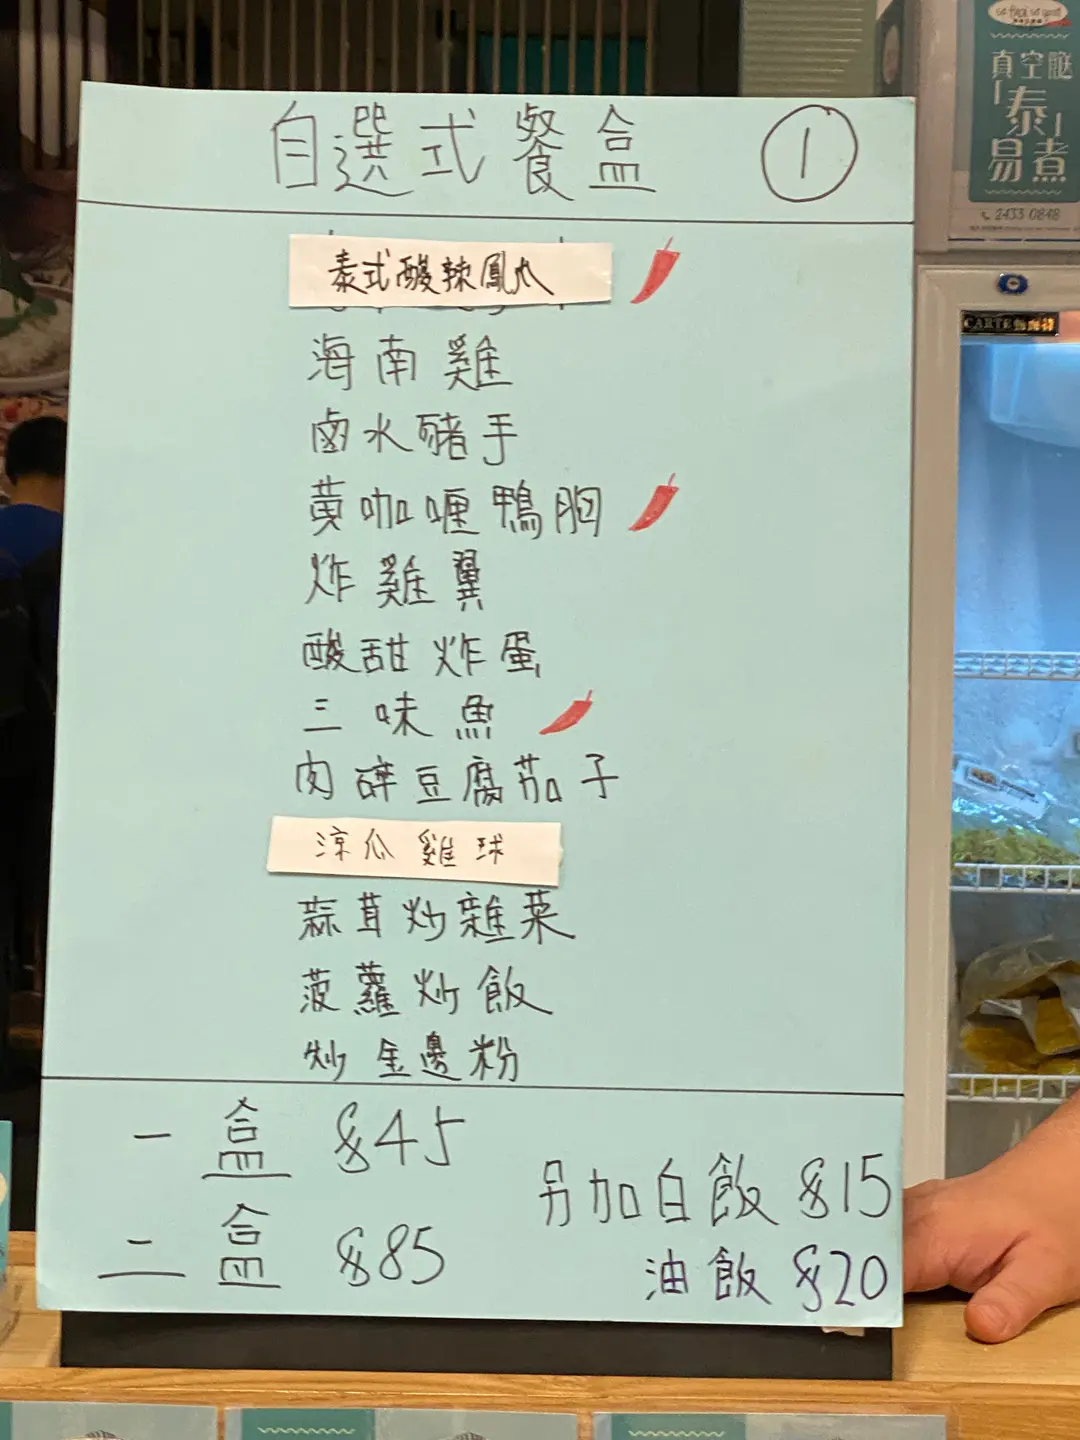 so thai so good
真空腿
「泰」
易煮
2433 0848
自選式餐盒 ①
泰式酸辣鳳爪
海南雞
鹵水豬手
黃咖喱鴨胸
炸雞翼
酸甜炸蛋
三味魚
肉碎豆腐茄子
涼瓜雞球
蒜茸炒雜菜
菠蘿炒飯
炒金邊粉
一盒 $45
二盒 $85
另加白飯 $15
油飯 $20